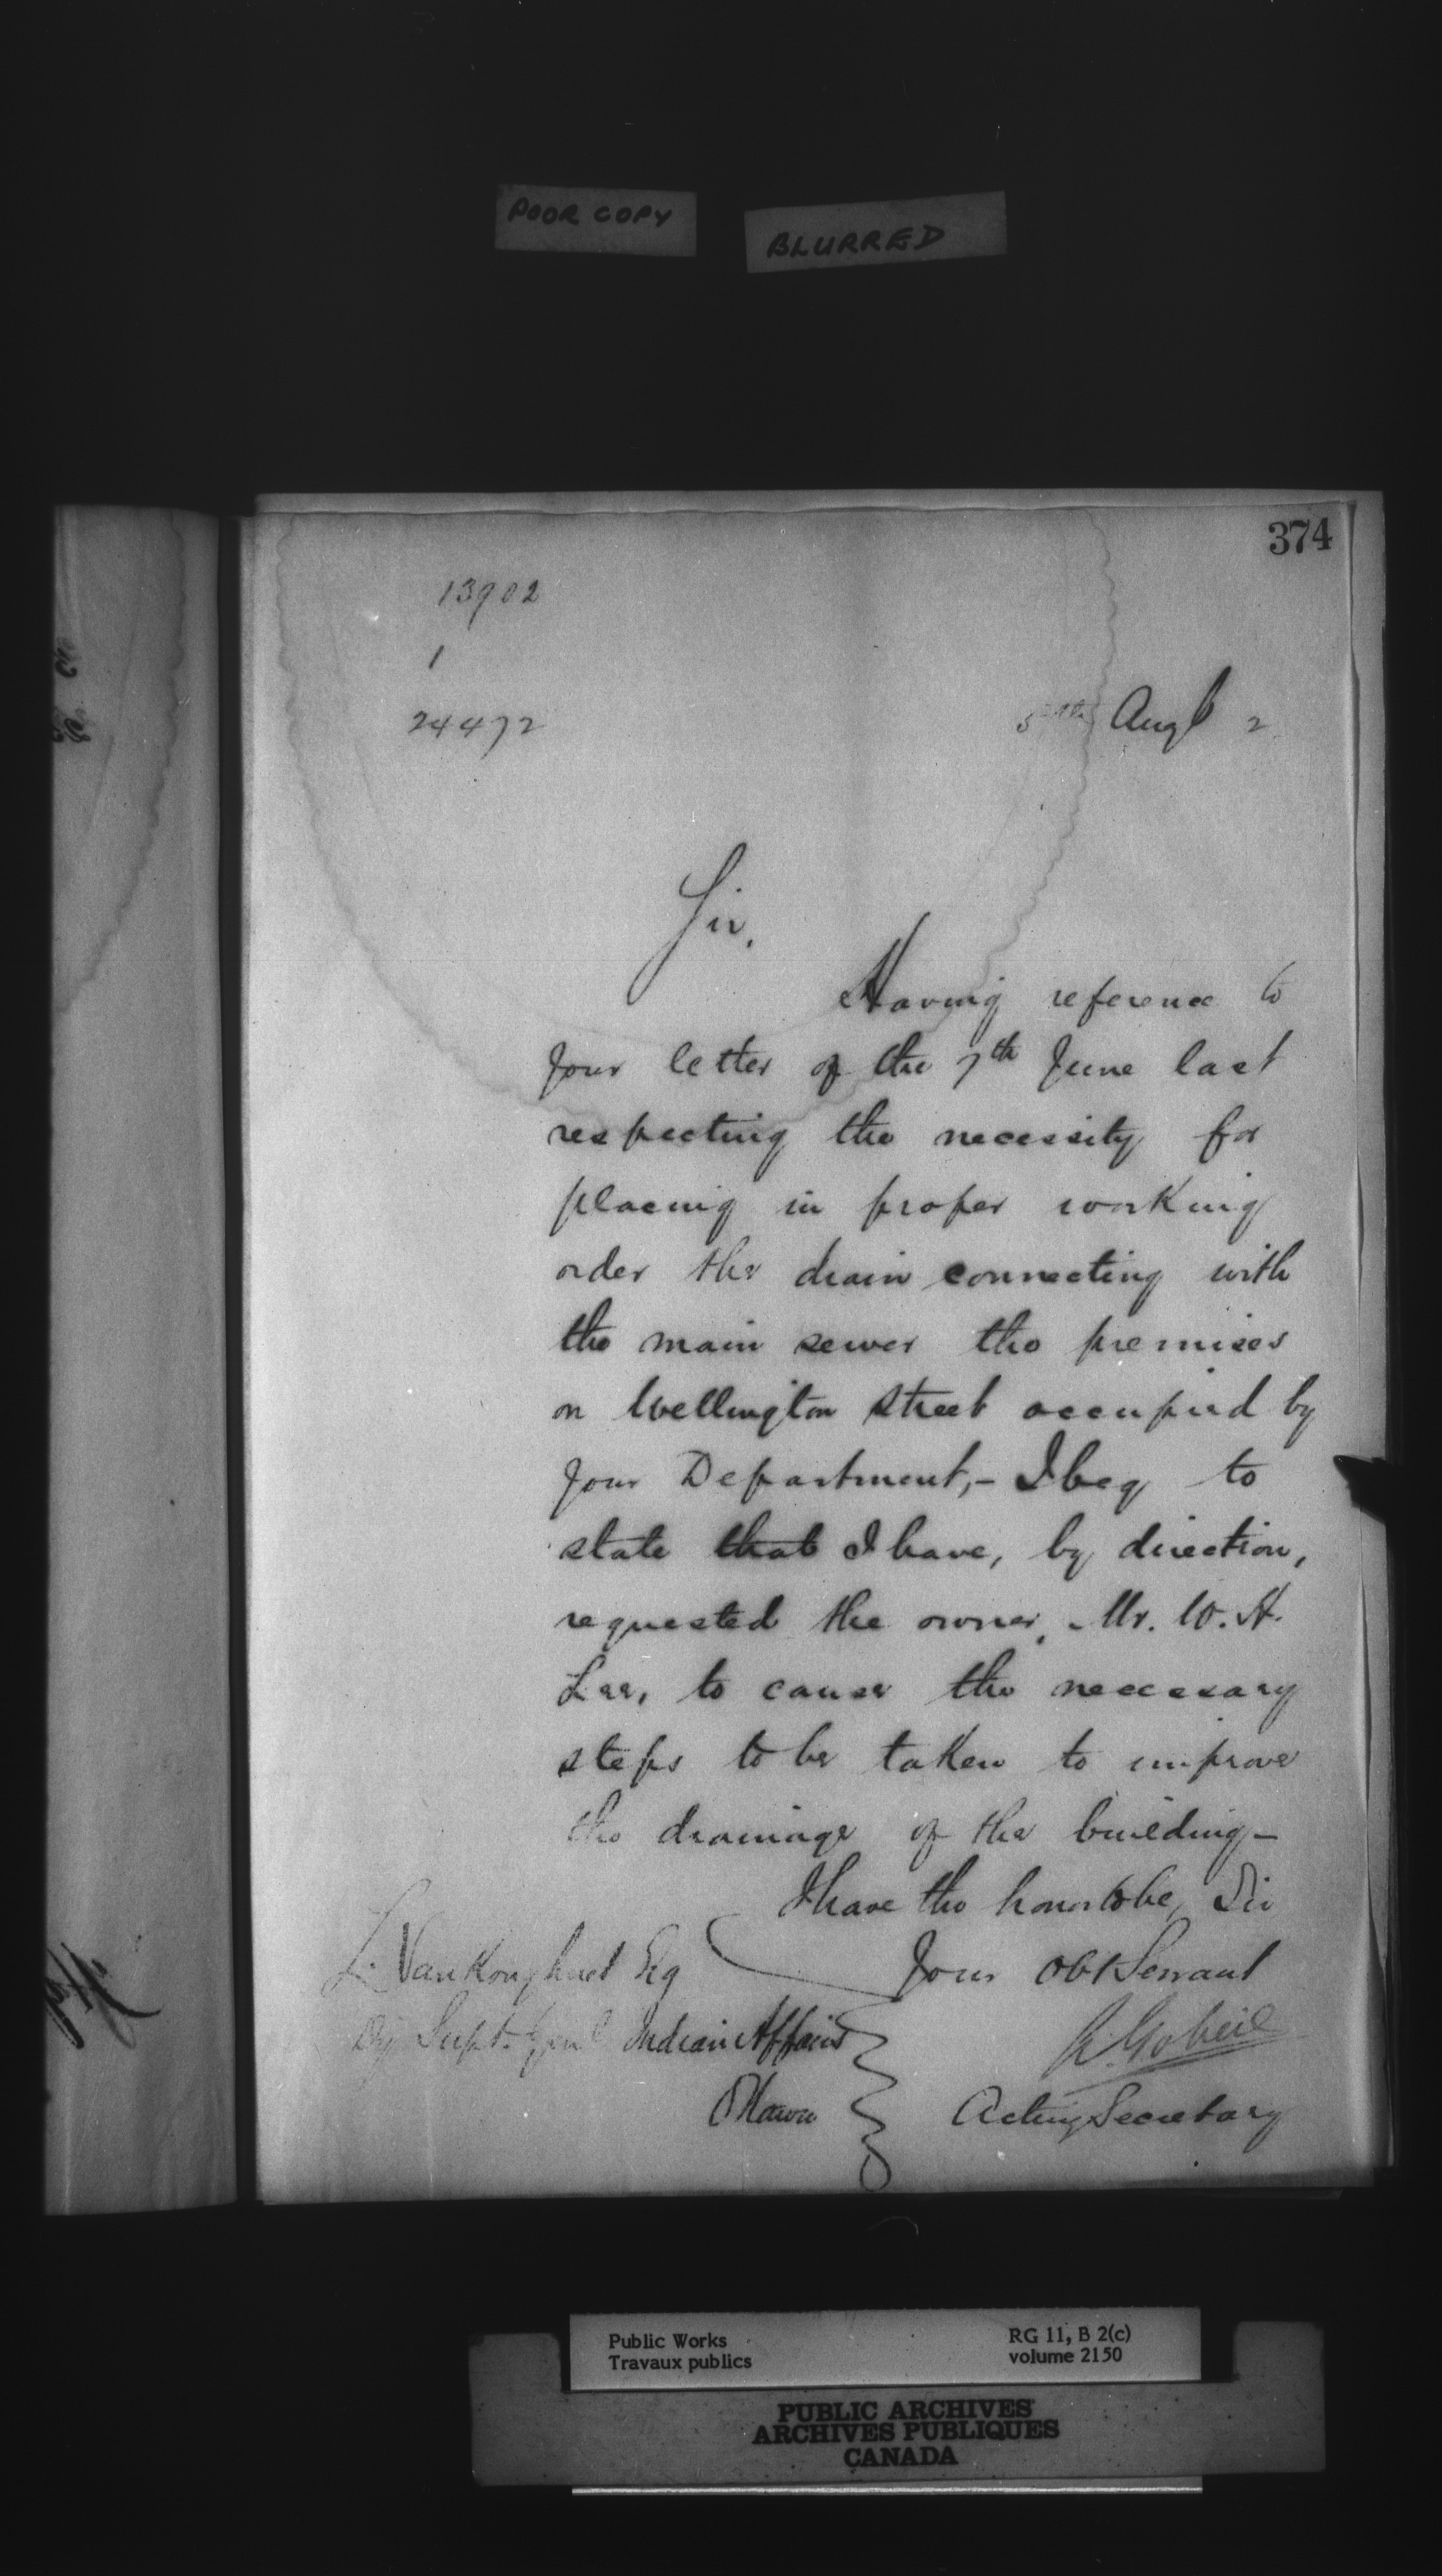 POOR COPY
BLURRED
374
13902
1
24472
5th Augt 2
Sir,
Having reference to
your letter of the 7th June last
respecting the necessity for
placing in proper working
order the drain connecting with
the main sewer the premises
on Wellington Street occupied by
your Department,- I beg to
state that I have, by direction,
requested the owner, Mr. W. H.
Lee, to cause the necessary
steps to be taken to improve
the drainage of the building-
I have the honor to be, Sir
Your Obt Servant
L. VanKoughnet Esq
Dy Supt. Genl Indian Affairs
Ottawa
A. Gobeil
Acting Secretary
Public Works
Travaux publics
RG 11, B 2(c)
volume 2150
PUBLIC ARCHIVES
ARCHIVES PUBLIQUES
CANADA